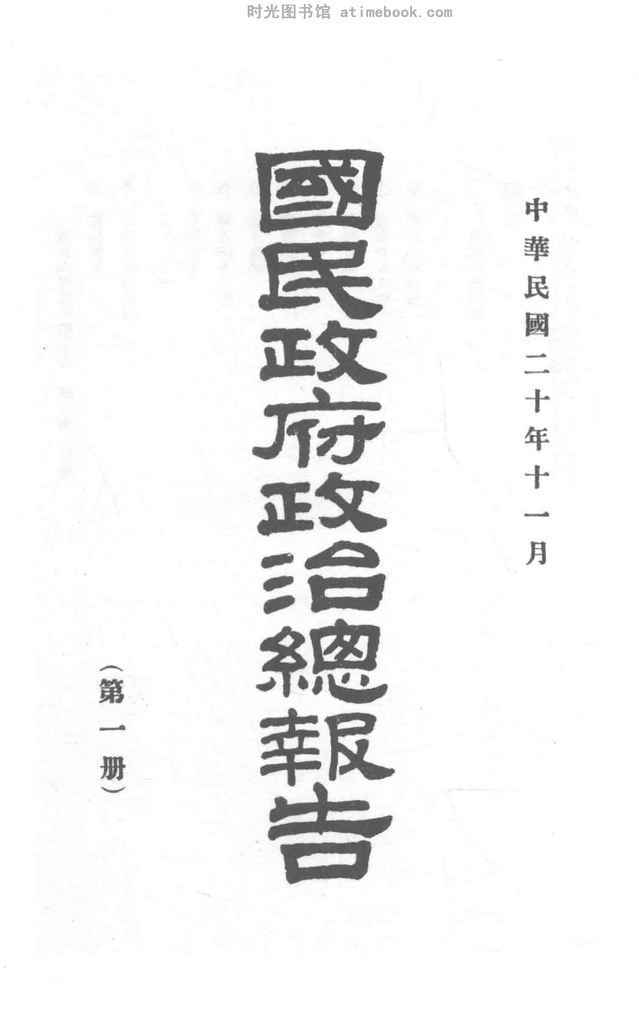 时光图书馆 atimebook.com
中華民國二十年十一月
國民政府政治總報告
（第一册）